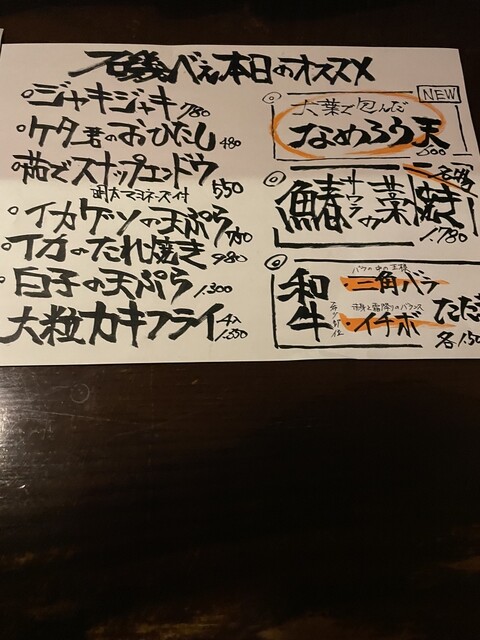 磯べえ本日のオススメ
ジャキジャキ 780
ケタ君のおひたし 480
茹でスナップエンドウ 550
明太マヨネーズ付
イカゲソの天ぷら 780
イカのたれ焼き 980
白子の天ぷら 1.300
大粒カキフライ 4入 1.350
NEW
大葉で包んだ
なめろう天
名物
鰆サワラの藁焼き
1.780
和牛
希少部位
バラの中の王様
・三角バラ
赤身と霜降りのバランス
・イチボ
たたき
各1.50